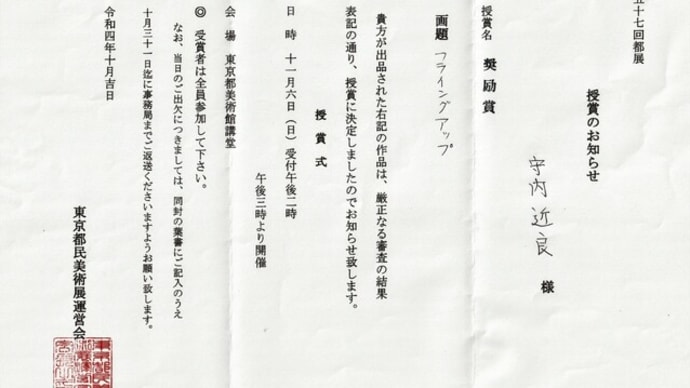 五十七回都展
授賞のお知らせ
守内 近良 様
授賞名 奨励賞
画題 フライングアップ
貴方が出品された右記の作品は、厳正なる審査の結果
表記の通り、授賞に決定しましたのでお知らせ致します。
授賞式
日 時 十一月六日（日）受付午後二時
午後三時より開催
会 場 東京都美術館講堂
◎ 受賞者は全員参加して下さい。
なお、当日のご出欠につきましては、同封の葉書にご記入のうえ
十月三十一日迄に事務局までご返送くださいますようお願い致します。
令和四年十月吉日
東京都民美術展運営会